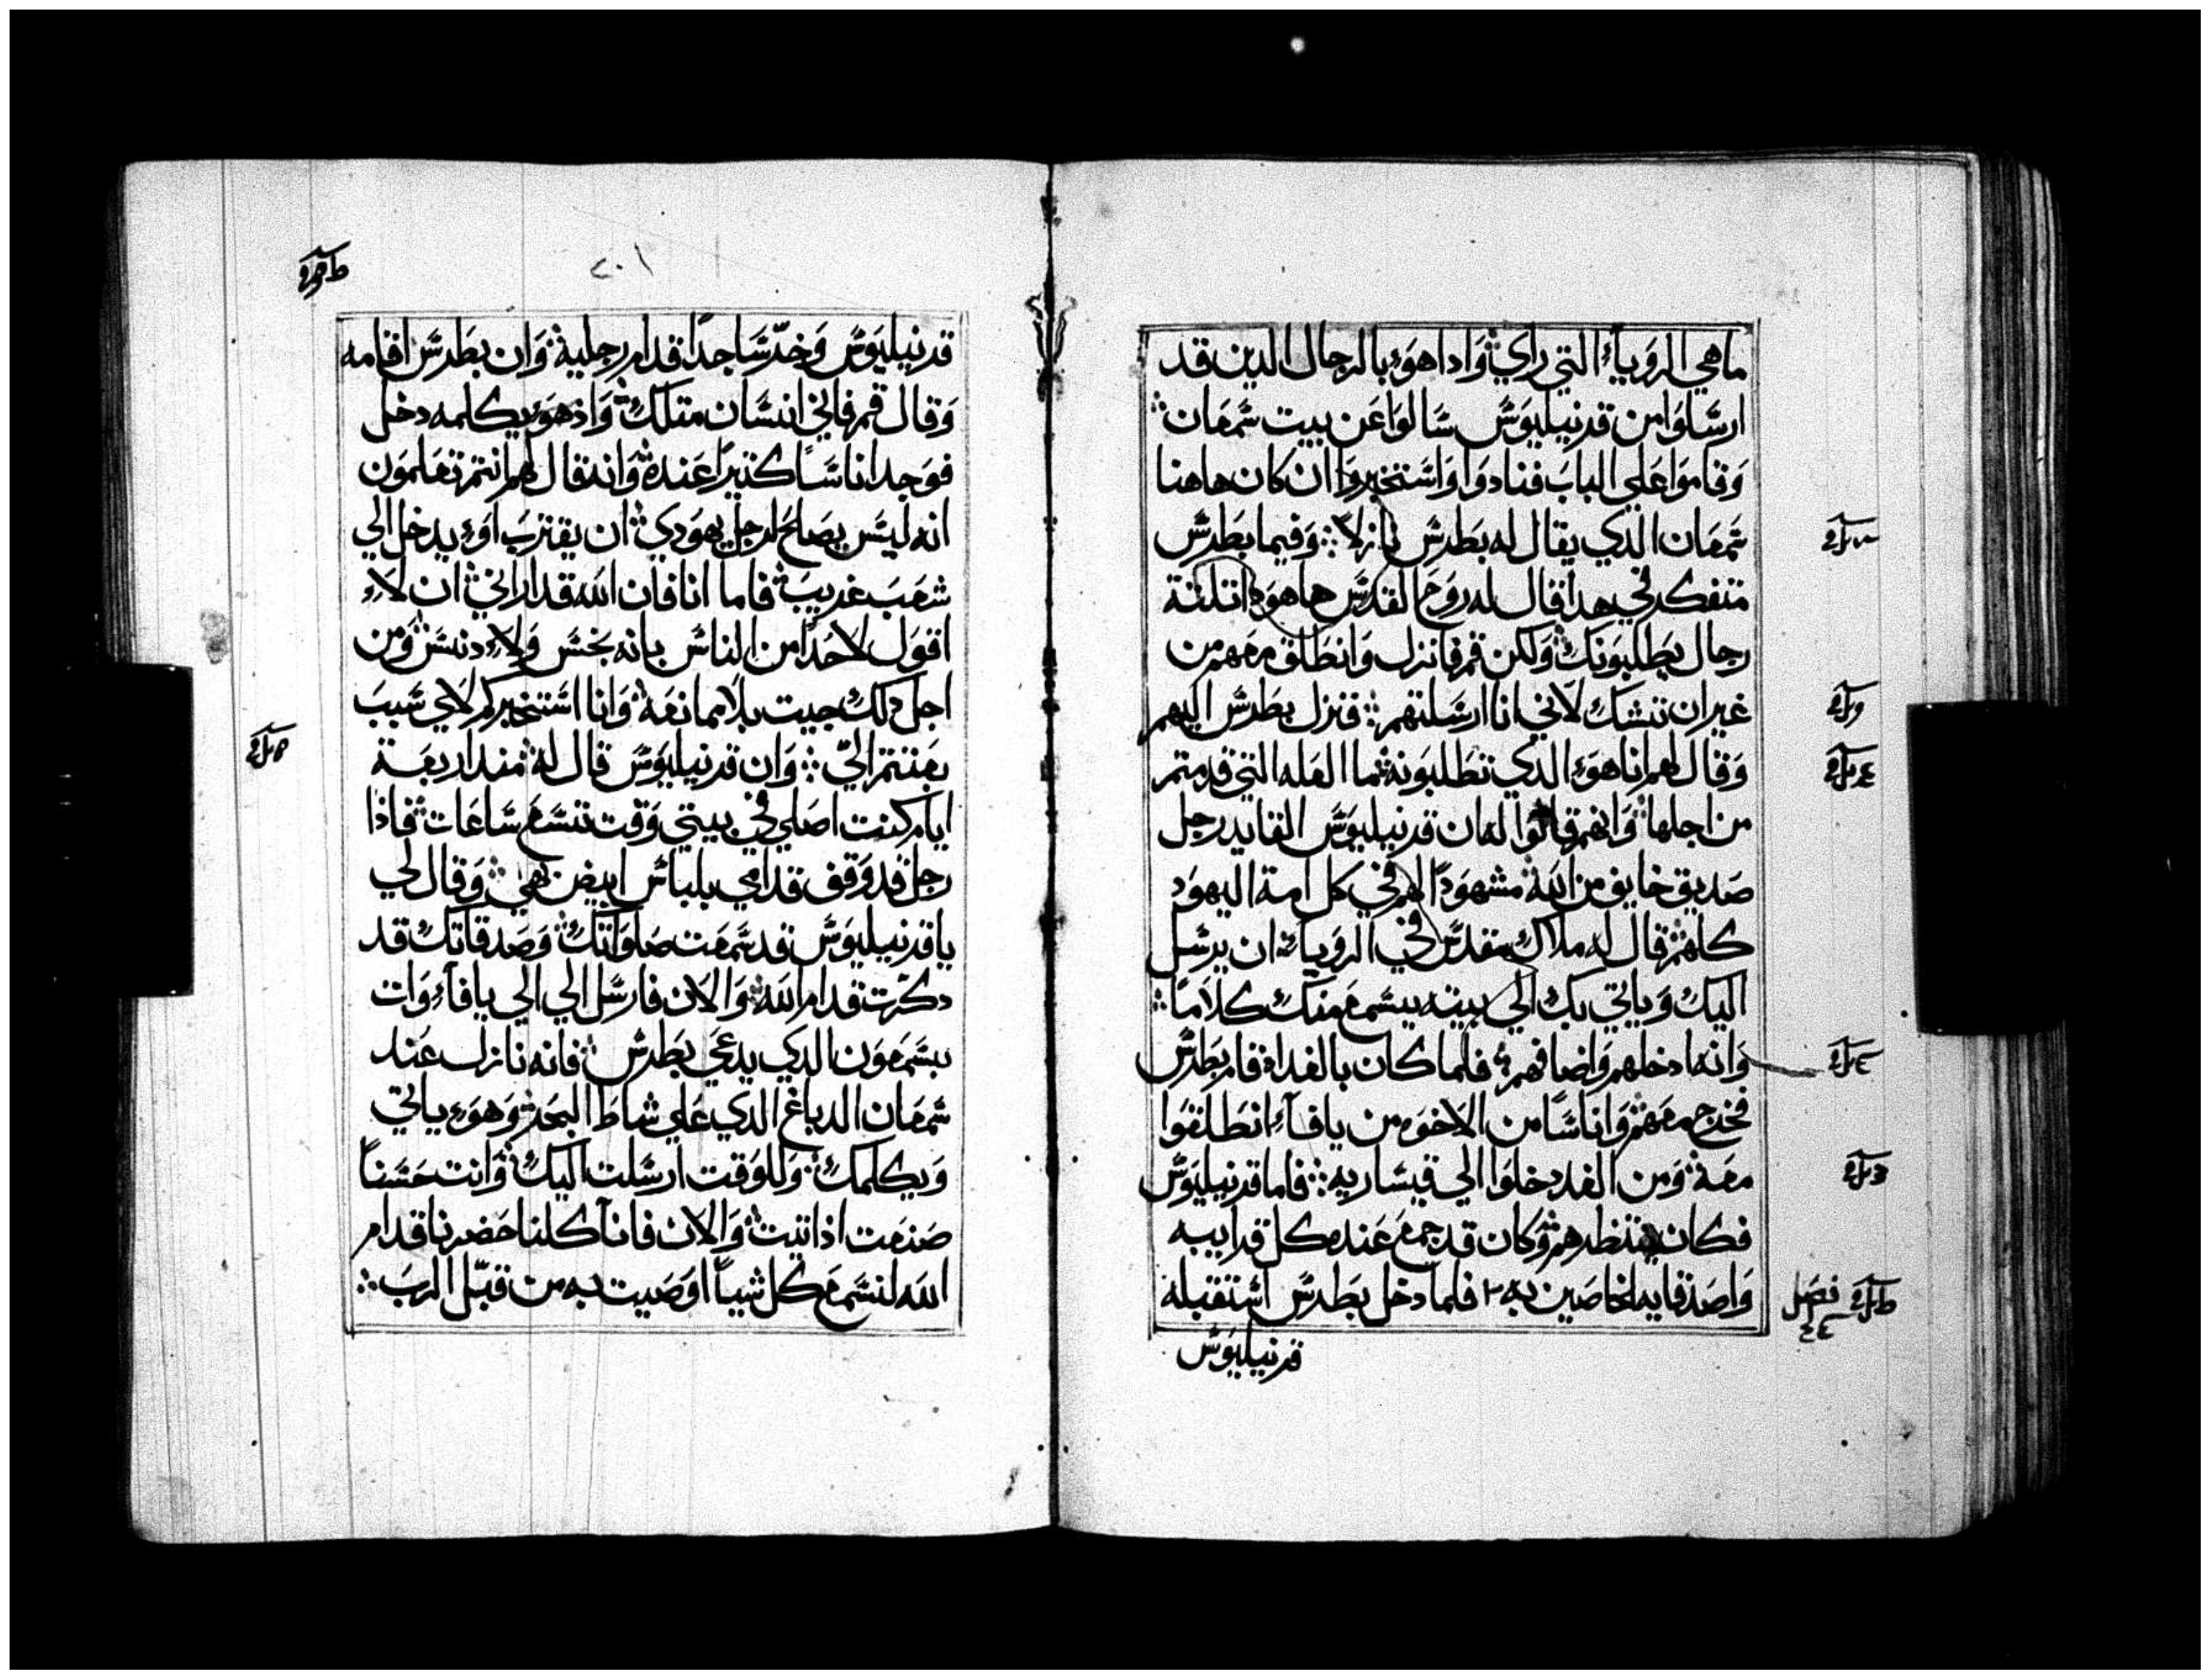 ماهي الروياء التي راي وادا هوء بالرجال الدين قد
ارسلوا من قرنيليوس سالوا عن بيت شمعان
وقاموا علي الباب فنادوا واستخبروا ان كان هاهنا
شمعان الدي يقال له بطرس نازلاً وفيما بطرس
متفكر في هدا قال له روح القدس هاهوء اتلتة
رجال يطلبونك ولكن قم فانزل وانطلق معهم من
غير ان تشك لاني انا ارسلتهم فنزل بطرس اليهم
وقال لهم انا هوء الدي تطلبونه ما العله التي قدمتم
من اجلها وانهم قالوا له ان قرنيليوس القايد رجل
صديق خايف من الله مشهوداً لهم في كل امة اليهود
كلهم قال له ملاك مقدس في الروياء ان يرسل
اليك وياتي بك الي بيته يسمع منك كلاماً
وانه ادخلهم واضافهم فلما كان بالغداة قام بطرس
فخرج معهم واناساً من الاخوه من يافاء انطلقوا
معه ومن الغد دخلوا الي قيسارية فاما قرنيليوس
فكان ينتظرهم وكان قد جمع عنده كل قرايبه
واصدقايه الخاصين به فلما دخل بطرس استقبله
فصل
٤٤
قرنيليوس
٢٠١
قرنيليوس وخرّ ساجداً قدام رجليه وان بطرس اقامه
وقال قم فاني انسان متلك واذ هوء يكلمه دخل
فوجد اناساً كتيراً عنده وانه قال لهم انتم تعلمون
انه ليس يصلح لرجل يهودي ان يقترب اوء يدخل الي
شعب غريب فاما انا فان الله قد اراني ان لاء
اقول لاحداً من الناس بانه نجس ولاء دنس ومن
اجل دلك جيت بلا ممانعة وانا استخبركم لاي سبب
بعتتم اليّ وان قرنيليوس قال له مند اربعة
ايام كنت اصلي في بيتي وقت تسع ساعات فاذا
رجل قد وقف قدامي بلباس ابيض بهي وقال لي
يا قرنيليوس قد سمعت صلواتك وصدقاتك قد
دكرت قدام الله والان فارسل الي الي يافاء وات
بسمعون الدي يدعي بطرس فانه نازل عند
شمعان الدباغ الدي علي شاط البحر وهوء ياتي
ويكلمك وللوقت ارسلت اليك وانت حسناً
صنعت اذ اتيت والان فانا كلنا حضرنا قدام
الله لنسمع كل شياً اوصيت به من قبل الرب